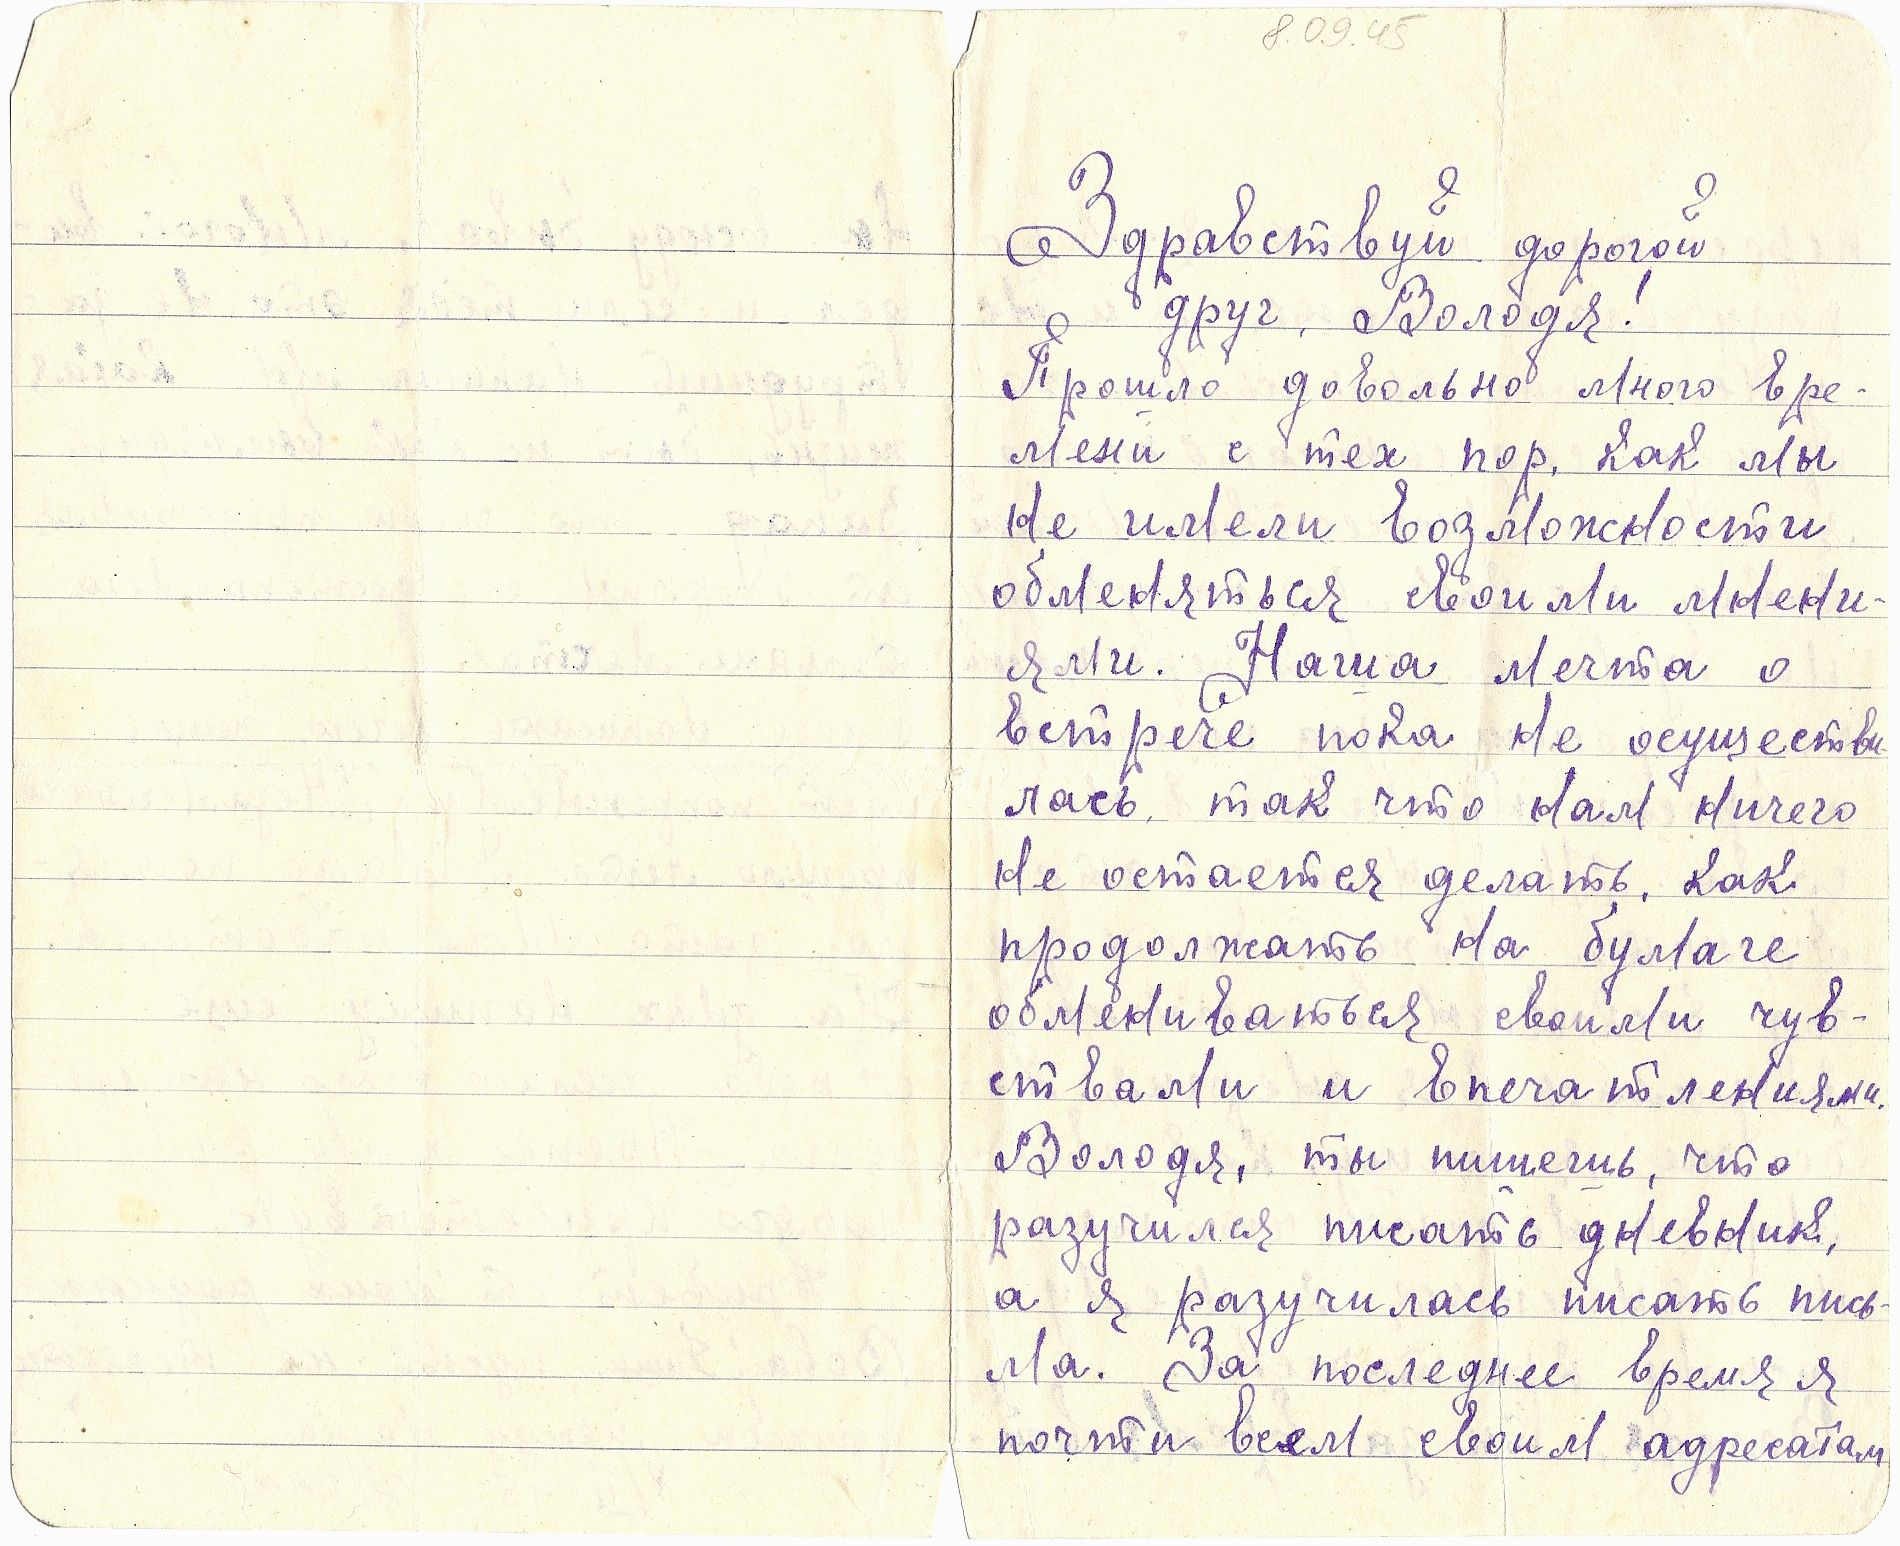 8.09.45
Здравствуй дорогой
друг, Володя!
Прошло довольно много вре-
мени с тех пор, как мы
не имели возможности
обменяться своими мнени-
ями. Наша мечта о
встрече пока не осуществи-
лась, так что нам ничего
не остается делать, как
продолжать на бумаге
обмениваться своими чув-
ствами и впечатлениями.
Володя, ты пишешь, что
разучился писать дневник,
а я разучилась писать пись-
ма. За последнее время я
почти всем своим адресатам